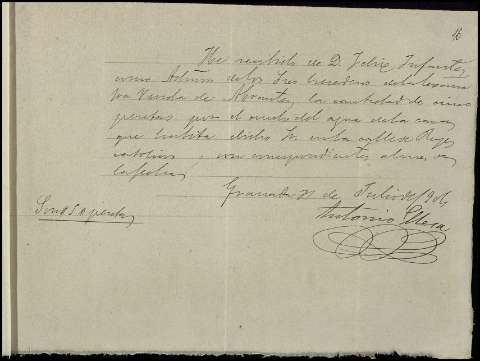 46
He recibido de D. Felix Infante,
como Admor de los Sres herederos de la Señora
Vda de la cantidad de cinco
pesetas por el del agua de la casa
que habita dicho Sr. en la calle de Reyes
católicos, correspondientes al
la fecha
Granada 21 de Julio de 1906
Son 5 pesetas
Antonio Mesa